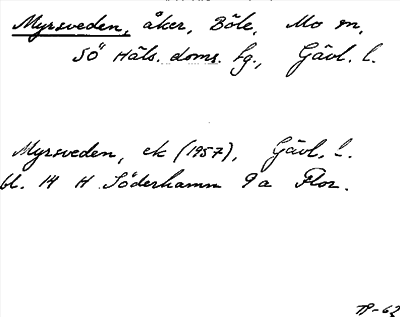 Myrsveden, åker, Böle, Mo sn,
SÖ Häls. doms. fg., Gävl. l.
Myrsveden, ek (1957), Gävl. l.
bl. 14 H Söderhamn 9a Flor.
TP-62